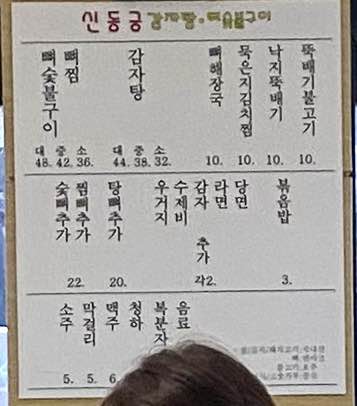 신동궁 감자탕·뼈숯불구이
뼈숯불구이
뼈찜
대 중 소
48. 42. 36.
감자탕
대 중 소
44. 38. 32.
뼈해장국
10.
묵은지김치찜
10.
낙지뚝배기
10.
뚝배기불고기
10.
숯뼈추가
찜뼈추가
22.
탕뼈추가
20.
우거지
수제비
감자
라면
당면
추가
각2.
볶음밥
3.
소주
5.
막걸리
5.
맥주
6.
청하
복분자
음료